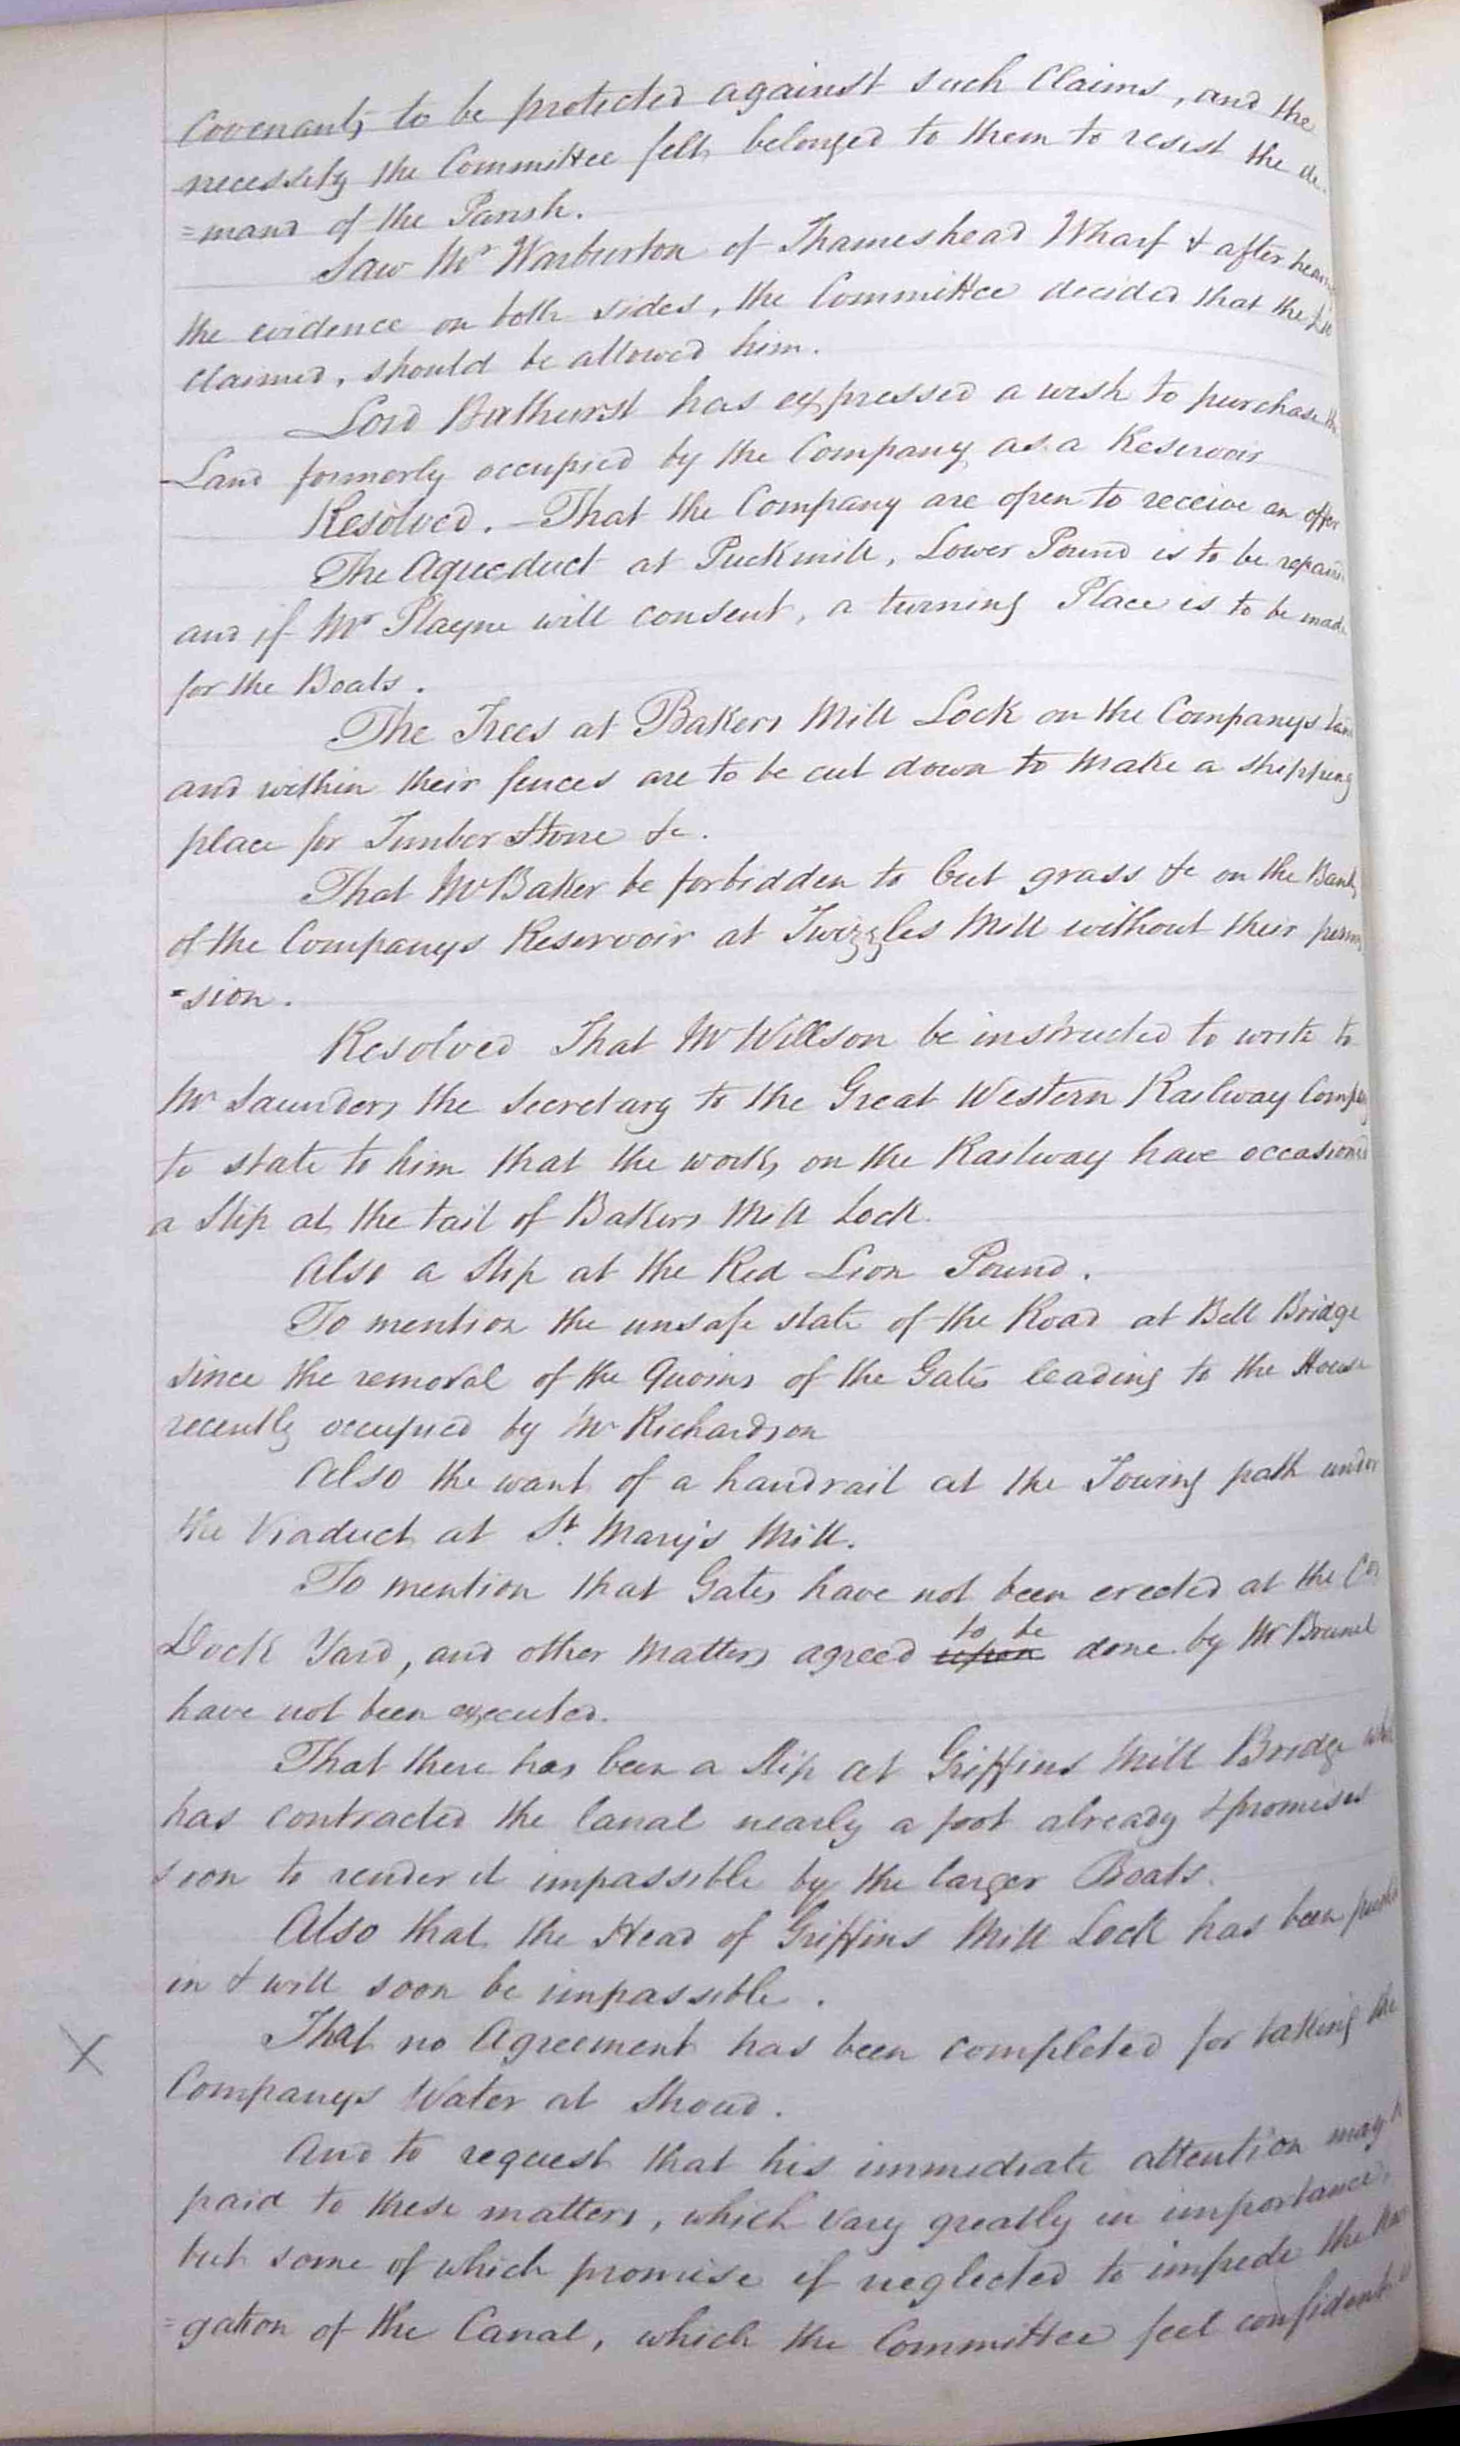 Covenants to be protected against such Claims, and the
necessity the Committee felt belonged to them to resist the de-
=mand of the Parish.
Saw Mr Warburton of Thameshead Wharf & after hearing
the evidence on both sides, the Committee decided that the
claimed, should be allowed him.
Lord Bathurst has expressed a wish to purchase the
Land formerly occupied by the Company as a Reservoir
Resolved. – That the Company are open to receive an offer
The Aqueduct at Puckmill, Lower Pound is to be repaired
and if Mr Playne will consent, a turning Place is to be made
for the Boats.
The Trees at Bakers Mill Lock on the Companys Land
and within their fences are to be cut down to make a shipping
place for Timber Stone &c.
That Mr Baker be forbidden to Cut grass &c on the Banks
of the Companys Reservoir at Twizzles Mill without their permis
=sion.
Resolved That Mr Willson be instructed to write to
Mr Saunders the Secretary to the Great Western Railway Company
to state to him that the works on the Railway have occasioned
a Slip at the tail of Bakers Mill Lock.
Also a Slip at the Red Lion Pound.
To mention the unsafe state of the Road at Bell Bridge
since the removal of the Quoins of the Gates leading to the House
recently occupied by Mr Richardson
Also the want of a handrail at the Towing path under
the Viaduct at St. Mary's Mill.
To mention that Gates have not been erected at the
Dock Yard, and other Matters agreed upon to be done by Mr Brunel
have not been executed.
That there has been a Slip at Griffins Mill Bridge which
has contracted the Canal nearly a foot already & promises
soon to render it impassible by the larger Boats.
Also that the Head of Griffins Mill Lock has been pushed
in & will soon be impassible.
That no Agreement has been completed for taking the
Companys Water at Stroud.
And to request that his immediate attention may be
paid to these matters, which vary greatly in importance,
but some of which promise if neglected to impede the Navi
=gation of the Canal, which the Committee feel confident